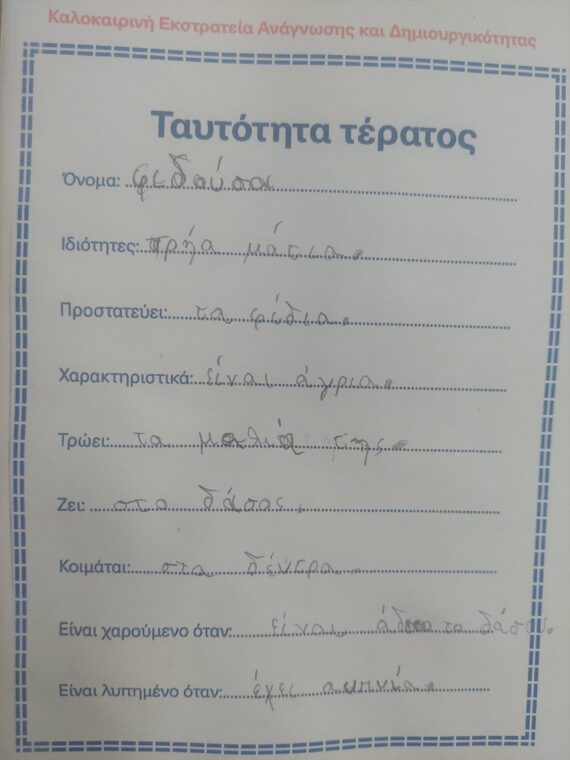 Καλοκαιρινή Εκστρατεία Ανάγνωσης και Δημιουργικότητας
Ταυτότητα τέρατος
Όνομα: φιδούσα
Ιδιότητες: τρήα μάτια.
Προστατεύει: τα φύδια.
Χαρακτηριστικά: είναι άγρια.
Τρώει: τα μαλιά της.
Ζει: στο δάσος.
Κοιμάται: στα δέντρα.
Είναι χαρούμενο όταν: είναι το δάσος.
Είναι λυπημένο όταν: έχει αυπνία.